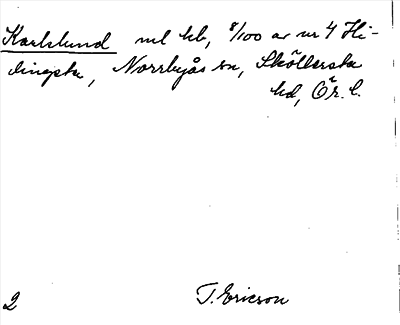 Karlslund ml kb, 8/100 av nr 4 Hi-
dingsta, Norrbyås sn, Sköllersta
hd, Ör. l.
2 T. Ericson